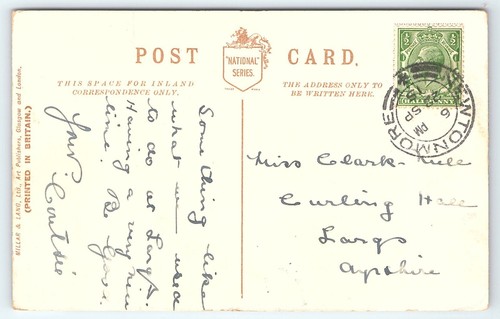 POST CARD.
"NATIONAL"
SERIES.
THIS SPACE FOR INLAND
CORRESPONDENCE ONLY.
THE ADDRESS ONLY TO
BE WRITTEN HERE.
MILLAR & LANG, LTD., Art Publishers, Glasgow and London.
(PRINTED IN BRITAIN.)
Something like
what we used
to do at Largs.
Having a very nice
time. Be Good.
Your
HALF PENNY
NEWTONMORE
6 PM
SP
Miss Clark
Curling Hall
Largs
Ayrshire